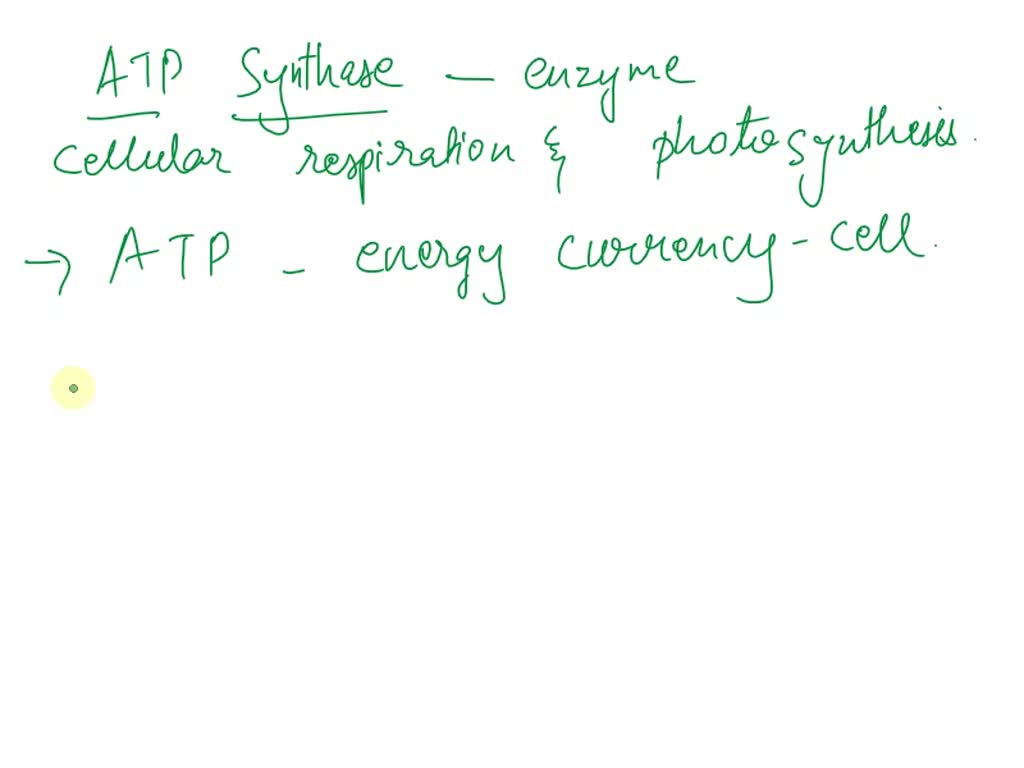 ATP Synthase - enzyme
cellular respiration & photosynthesis.
→ ATP - energy currency - cell.